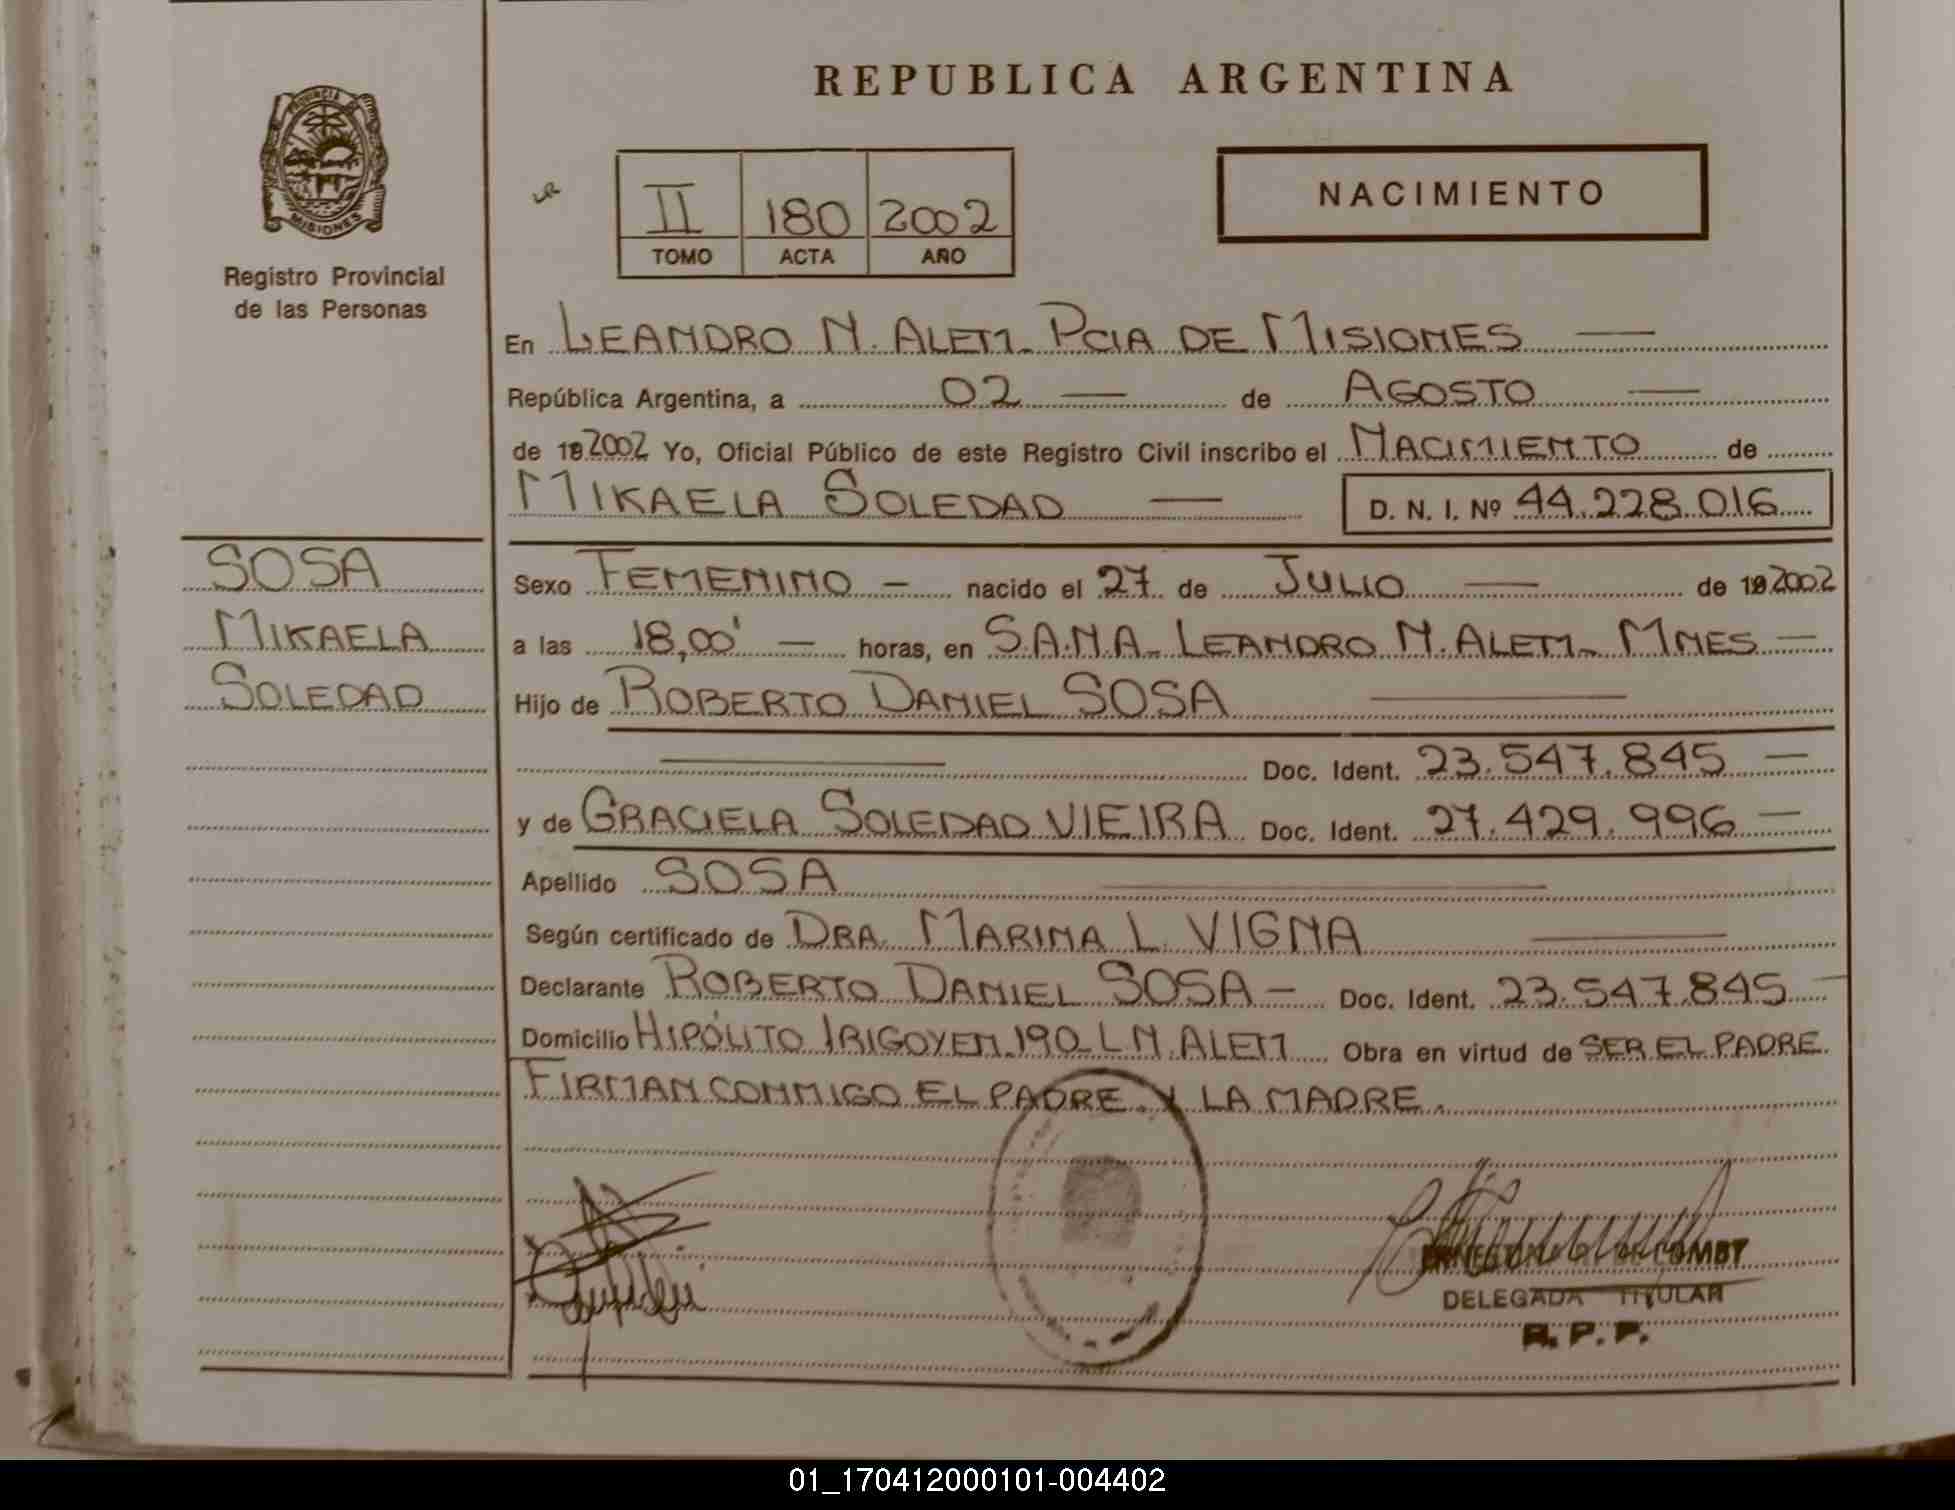 REPUBLICA ARGENTINA
PROVINCIA DE
MISIONES
Registro Provincial
de las Personas
LR
II 180 2002
TOMO ACTA AÑO
NACIMIENTO
En LEANDRO N. ALEM - PCIA DE MISIONES —
República Argentina, a 02 — de AGOSTO —
de 192002 Yo, Oficial Público de este Registro Civil inscribo el NACIMIENTO de
MIKAELA SOLEDAD — D. N. I. Nº 44.228.016
SOSA
MIKAELA
SOLEDAD
Sexo FEMENINO — nacido el 27 de JULIO — de 192002
a las 18,00' — horas, en S.A.N.A - LEANDRO N. ALEM - MNES —
Hijo de ROBERTO DANIEL SOSA —
— Doc. Ident. 23.547.845 —
y de GRACIELA SOLEDAD VIEIRA Doc. Ident. 27.429.996 —
Apellido SOSA —
Según certificado de DRA. MARINA L. VIGNA —
Declarante ROBERTO DANIEL SOSA — Doc. Ident. 23.547.845 —
Domicilio HIPÓLITO IRIGOYEN 190 - L N. ALEM Obra en virtud de SER EL PADRE.
FIRMAN CONMIGO EL PADRE Y LA MADRE.
DELEGADA TITULAR
R. P. P.
01_170412000101-004402